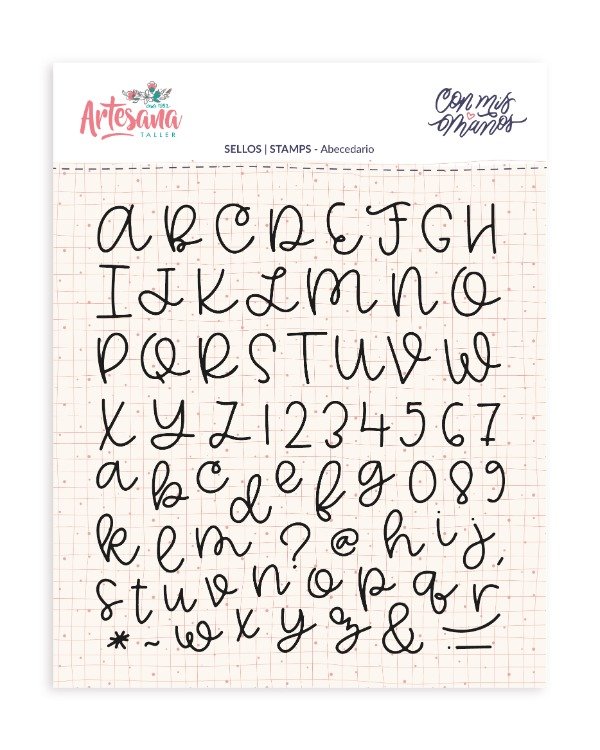 Artesana
TALLER
Con mis
manos
SELLOS | STAMPS - Abecedario
A B C D E F G H
I J K L M N O
P Q R S T U V W
X Y Z 1 2 3 4 5 6 7
a b c d e f g 0 8 9
k l m ? @ h i j ,
s t u v n o p q r
* ~ w x y z & . _